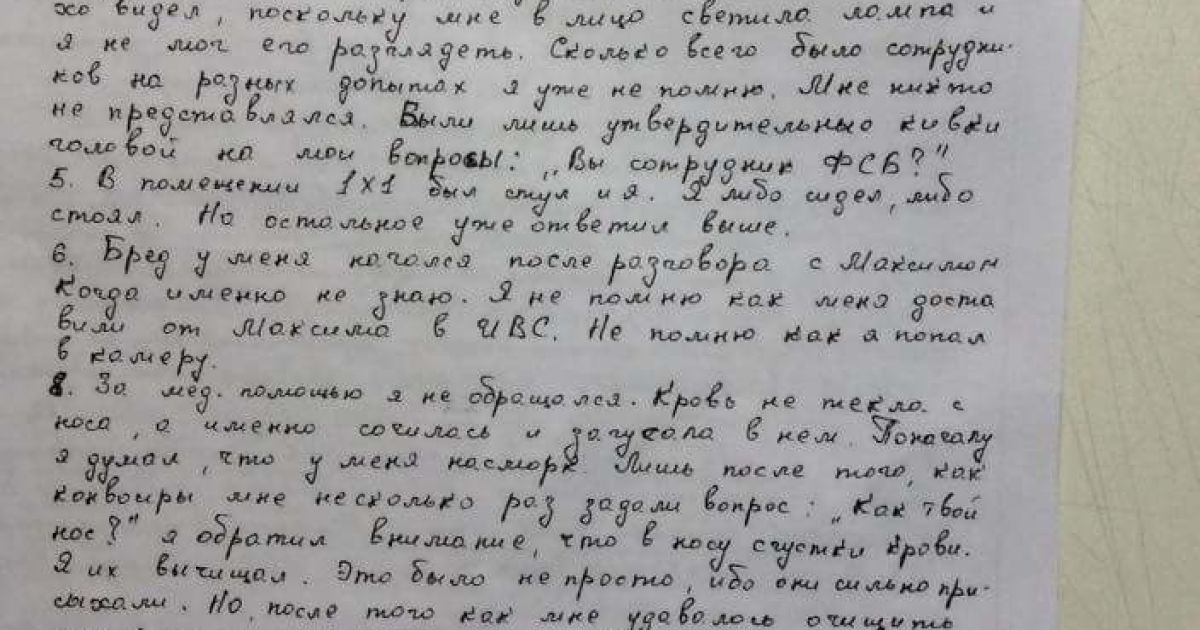 хо видел, поскольку мне в лицо светила лампа и
я не мог его разглядеть. Сколько всего было сотрудни-
ков на разных допытах я уже не помню. Мне никто
не представлялся. Были лишь утвердительныо кивки
головой на мои вопросы: „Вы сотрудник ФСБ?"
5. В помещении 1х1 был стул и я. Я либо сидел, либо
стоял. На остальное уже ответил выше.
6. Бред у меня начался после разговора с Максимом
Когда именно не знаю. Я не помню как меня доста
вили от Максима в ИВС. Не помню как я попал
в камеру.
8. За мед. помощью я не обращался. Кровь не текла с
носа, а именно сочилась и загусала в нем. Поначалу
я думал, что у меня насморк. Лишь после того, как
конвоиры мне несколько раз задали вопрос: „Как твой
нос?" я обратил внимание, что в носу сгустки крови.
Я их вычищал. Это было не просто, ибо они сильно при-
сыхали. Но, после того как мне удавалось очищить